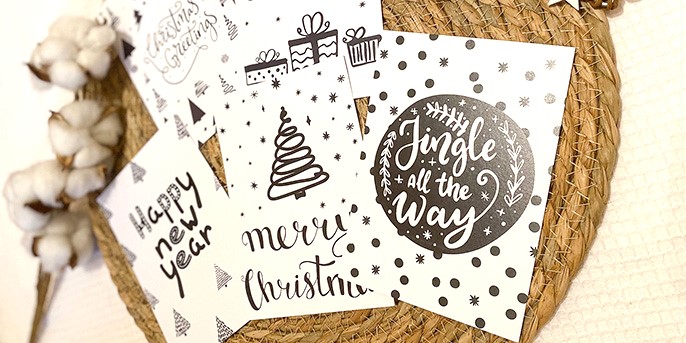 Christmas
Greetings
Happy
new
year
merry
Christm
Jingle
all the
Way